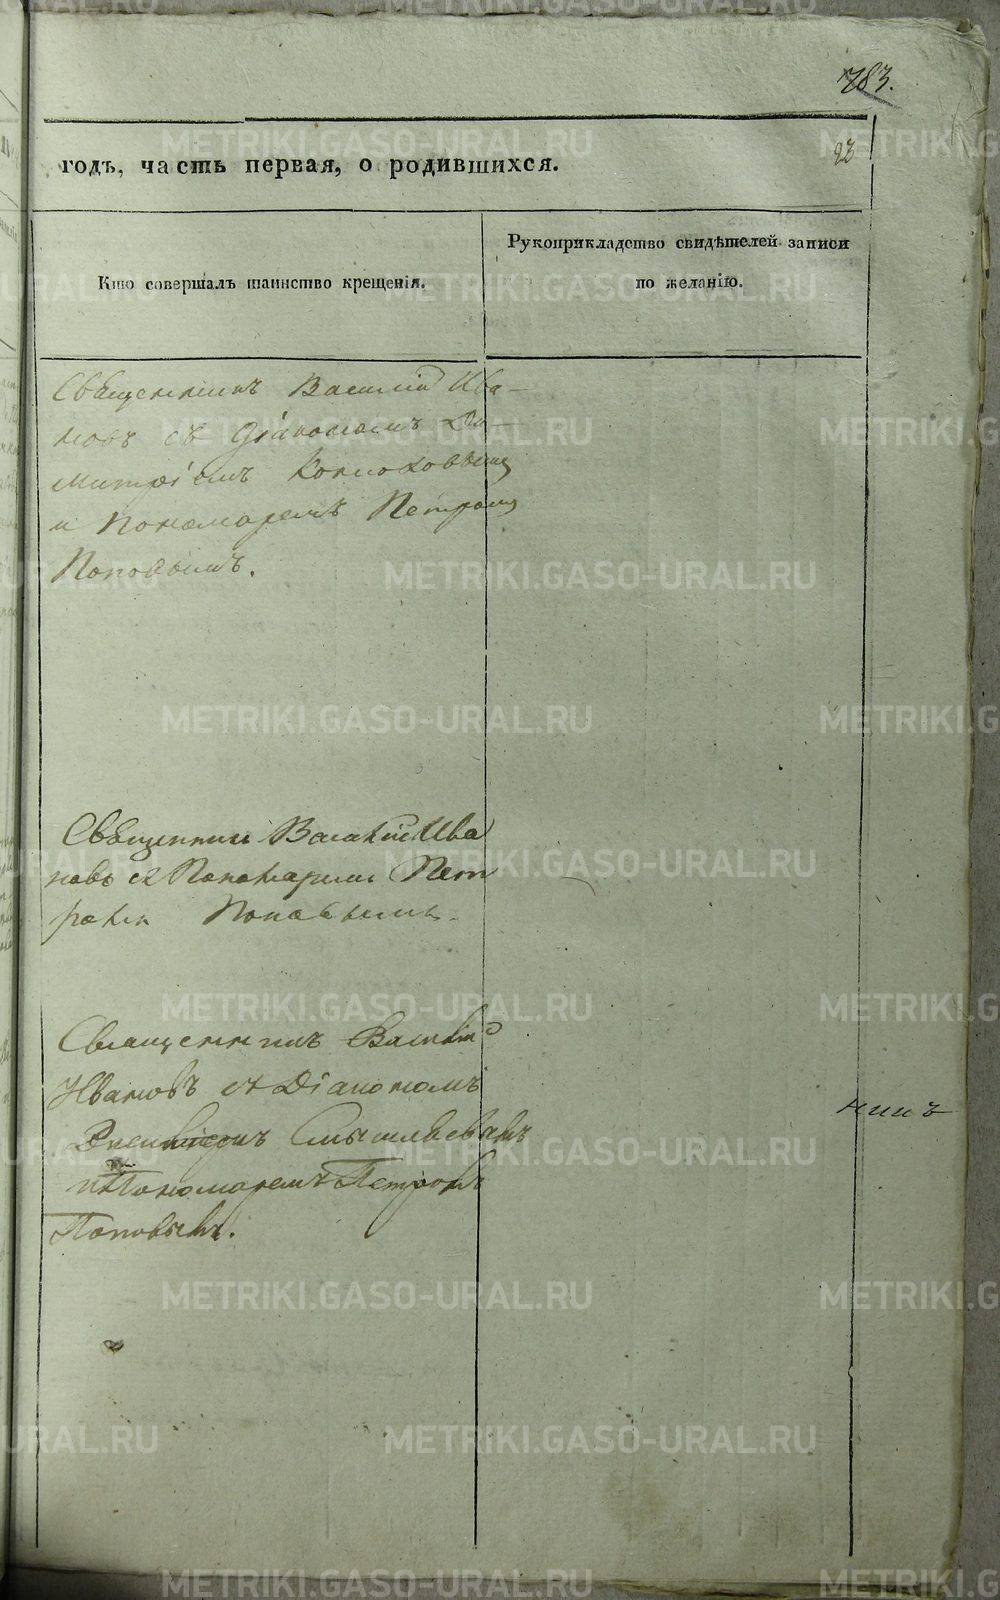 783.
93
годъ, часть первая, о родившихся.
Кто совершалъ таинство крещенія.
Рукоприкладство свидѣтелей записи
по желанію.
Священникъ Василій Ива-
новъ съ Діакономъ Ди-
митріемъ Конюховымъ
и Пономаремъ Петромъ
Поповымъ.
Священникъ Василій Ива
новъ съ Пономаремъ Пет
ромъ Поповымъ.
Священникъ Василій
Ивановъ съ Діакономъ
Смышляевымъ
и Пономаремъ Петромъ
Поповымъ.
никъ
METRIKI.GASO-URAL.RU